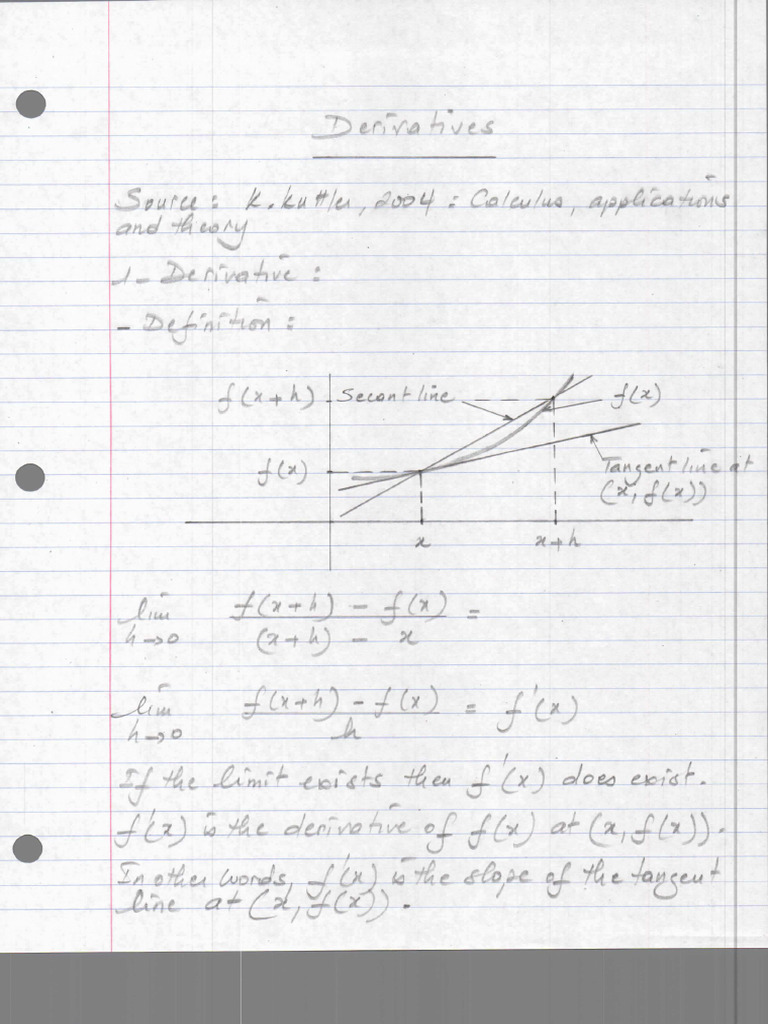 Derivatives
Source: K. Kuttler, 2004: Calculus, applications
and theory
1- Derivative:
- Definition:
f(x+h) Secant line f(x)
f(x) Tangent line at
(x, f(x))
x x+h
lim f(x+h) - f(x) =
h→0 (x+h) - x
lim f(x+h) - f(x) = f'(x)
h→0 h
If the limit exists then f'(x) does exist.
f'(x) is the derivative of f(x) at (x, f(x)).
In other words, f'(x) is the slope of the tangent
line at (x, f(x)).